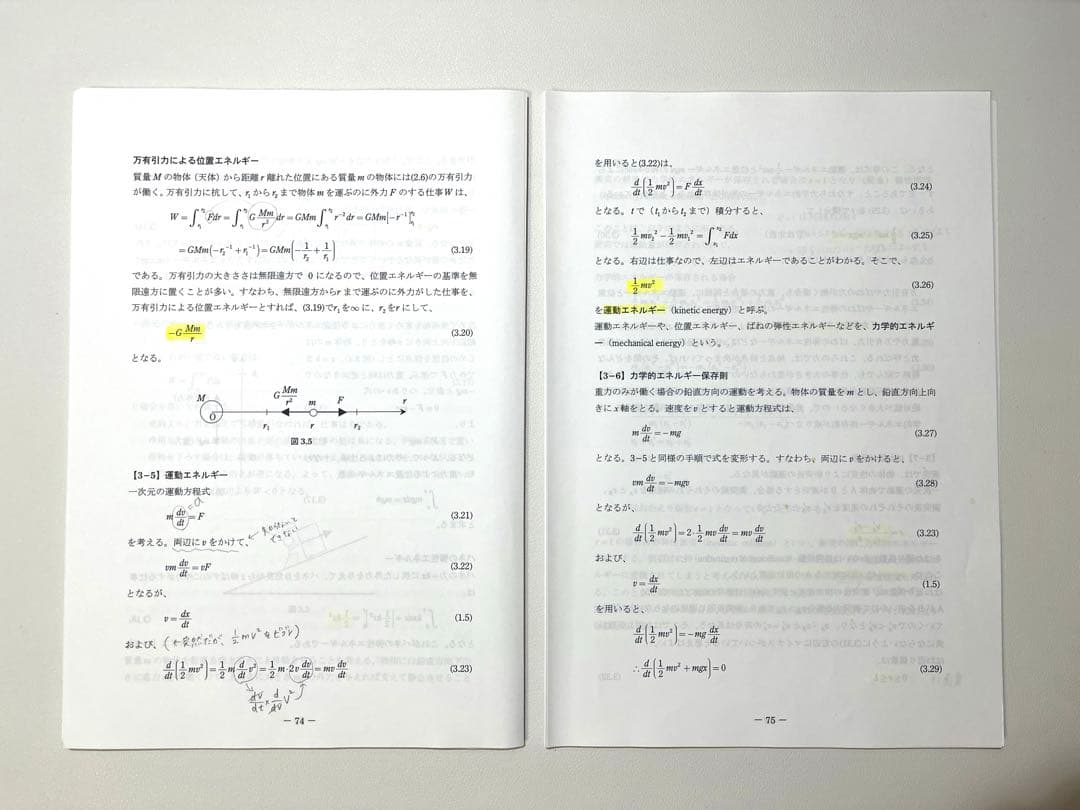 万有引力による位置エネルギー
質量 M の物体（天体）から距離 r 離れた位置にある質量 m の物体には(2.6)の万有引力
が働く。万有引力に抗して、r₁からr₂まで物体 m を運ぶのに外力 F のする仕事 W は、
W = ∫_{r₁}^{r₂} Fdr = ∫_{r₁}^{r₂} G Mm/r² dr = GMm ∫_{r₁}^{r₂} r⁻² dr = GMm[−r⁻¹]_{r₁}^{r₂}
= GMm(−r₂⁻¹ + r₁⁻¹) = GMm(−1/r₂ + 1/r₁) (3.19)
である。万有引力の大きささは無限遠方で 0 になるので、位置エネルギーの基準を無
限遠方に置くことが多い。すなわち、無限遠方からr まで運ぶのに外力がした仕事を、
万有引力による位置エネルギーとすれば、(3.19)でr₁を∞ に、r₂をr にして、
−G Mm/r (3.20)
となる。
M O r₁ G Mm/r² m r F r₂ r
図 3.5
【3−5】運動エネルギー
一次元の運動方程式
m dv/dt = F (3.21)
=a
を考える。両辺に v をかけて、
vm dv/dt = vF (3.22)
となるが、
v = dx/dt (1.5)
および、
d/dt(1/2 mv²) = 1/2 m d/dt v² = 1/2 m·2v dv/dt = mv dv/dt (3.23)
dv/dt × d/dv v²
― 74 ―
を用いると(3.22)は、
d/dt(1/2 mv²) = F dx/dt (3.24)
となる。t で（t₁からt₂まで）積分すると、
1/2 mv₂² − 1/2 mv₁² = ∫_{x₁}^{x₂} Fdx (3.25)
となる。右辺は仕事なので、左辺はエネルギーであることがわかる。そこで、
1/2 mv² (3.26)
を運動エネルギー（kinetic energy）と呼ぶ。
運動エネルギーや、位置エネルギー、ばねの弾性エネルギーなどを、力学的エネルギ
ー（mechanical energy）という。
【3−6】力学的エネルギー保存則
重力のみが働く場合の鉛直方向の運動を考える。物体の質量を m とし、鉛直方向上向
きに x 軸をとる。速度を v とすると運動方程式は、
m dv/dt = −mg (3.27)
となる。3−5 と同様の手順で式を変形する。すなわち、両辺に v をかけると、
vm dv/dt = −mgv (3.28)
となるが、
d/dt(1/2 mv²) = 2·1/2 mv dv/dt = mv dv/dt (3.23)
および、
v = dx/dt (1.5)
を用いると、
d/dt(1/2 mv²) = −mg dx/dt
∴ d/dt(1/2 mv² + mgx) = 0 (3.29)
― 75 ―